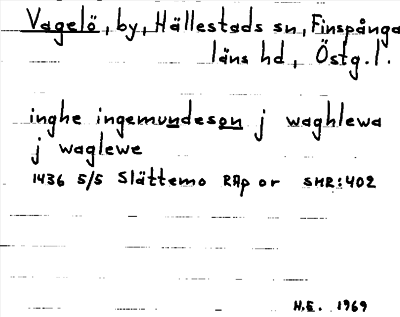 Vagelö, by, Hällestads sn, Finspånga
läns hd, Östg.l.
inghe ingemundeson j waghlewa
j waglewe
1436 5/5 Slättemo RAp or SMR:402
H.E. 1969